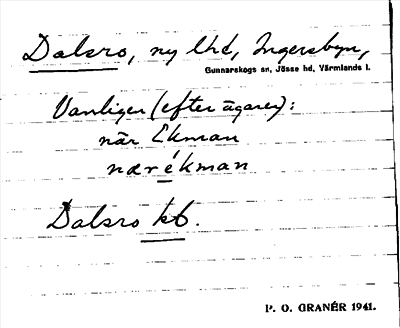 Dalsro, ny lhd, Ingersbyn,
Gunnarskogs sn, Jösse hd, Värmlands l.
Vanligen (efter ägaren):
när Ekman
nær ékman
Dalsro kb.
P. O. GRANÉR 1941.